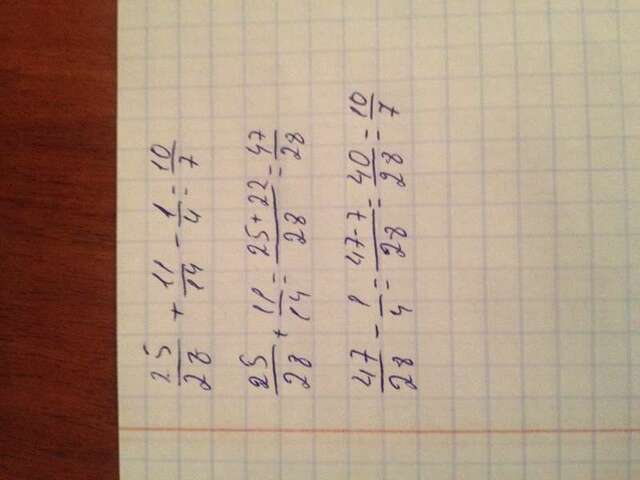 25/28 + 11/14 - 1/4 = 10/7
25/28 + 11/14 = 25+22/28 = 47/28
47/28 - 1/4 = 47-7/28 = 40/28 = 10/7